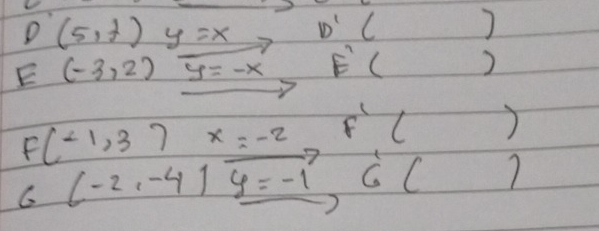 D (5,7) y=x D' ( )
E (-3,2) y=-x E' ( )
F(-1,3) x=-2 F' ( )
G (-2,-4) y=-1 G' ( )